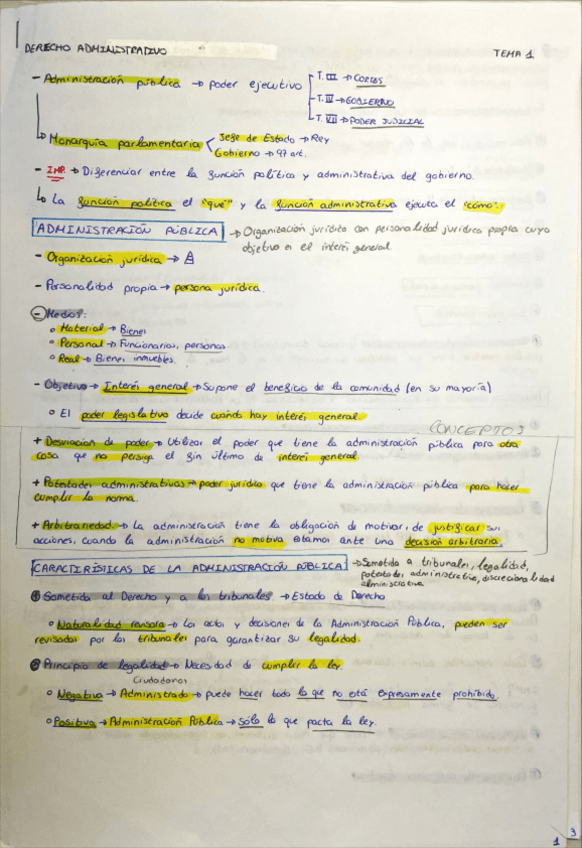 DERECHO ADMINISTRATIVO
TEMA 1
- Administración pública → poder ejecutivo
T. III → CORTES
T. IV → GOBIERNO
T. VI → PODER JUDICIAL
↳ Monarquía parlamentaria
Jefe de Estado → Rey
Gobierno → 97 art.
- IMP. → Diferenciar entre la función política y administrativa del gobierno.
↳ La función política el "que" y la función administrativa ejecuta el "cómo".
ADMINISTRACIÓN PÚBLICA → Organización jurídica con personalidad jurídica propia cuyo
objetivo es el interés general
- Organización jurídica →
- Personalidad propia → persona jurídica.
- Medios:
° Material → Bienes
° Personal → Funcionarios, personas
° Real → Bienes inmuebles.
- Objetivo → Interés general → Supone el beneficio de la comunidad (en su mayoría)
° El poder legislativo decide cuando hay interés general.
CONCEPTOS
+ Desviación de poder → Utilizar el poder que tiene la administración pública para otra
cosa que no persiga el fin último de interés general.
+ Potestades administrativas → poder jurídico que tiene la administración pública para hacer
cumplir la norma.
+ Arbitrariedad → La administración tiene la obligación de motivar, de justificar sus
acciones, cuando la administración no motiva estamos ante una decisión arbitraria.
CARACTERÍSTICAS DE LA ADMINISTRACIÓN PÚBLICA → Sometida a tribunales, legalidad,
potestades administrativa, discrecionalidad
administrativa
① Sometida al Derecho y a los tribunales → Estado de Derecho
° Naturalidad revisora → Los actos y decisiones de la Administración Pública, pueden ser
revisados por los tribunales para garantizar su legalidad.
② Principio de legalidad → Necesidad de cumplir la ley.
Ciudadanos
° Negativa → Administrado → puede hacer todo lo que no está expresamente prohibido.
° Positiva → Administración Pública → sólo lo que pacta la ley.
3
1